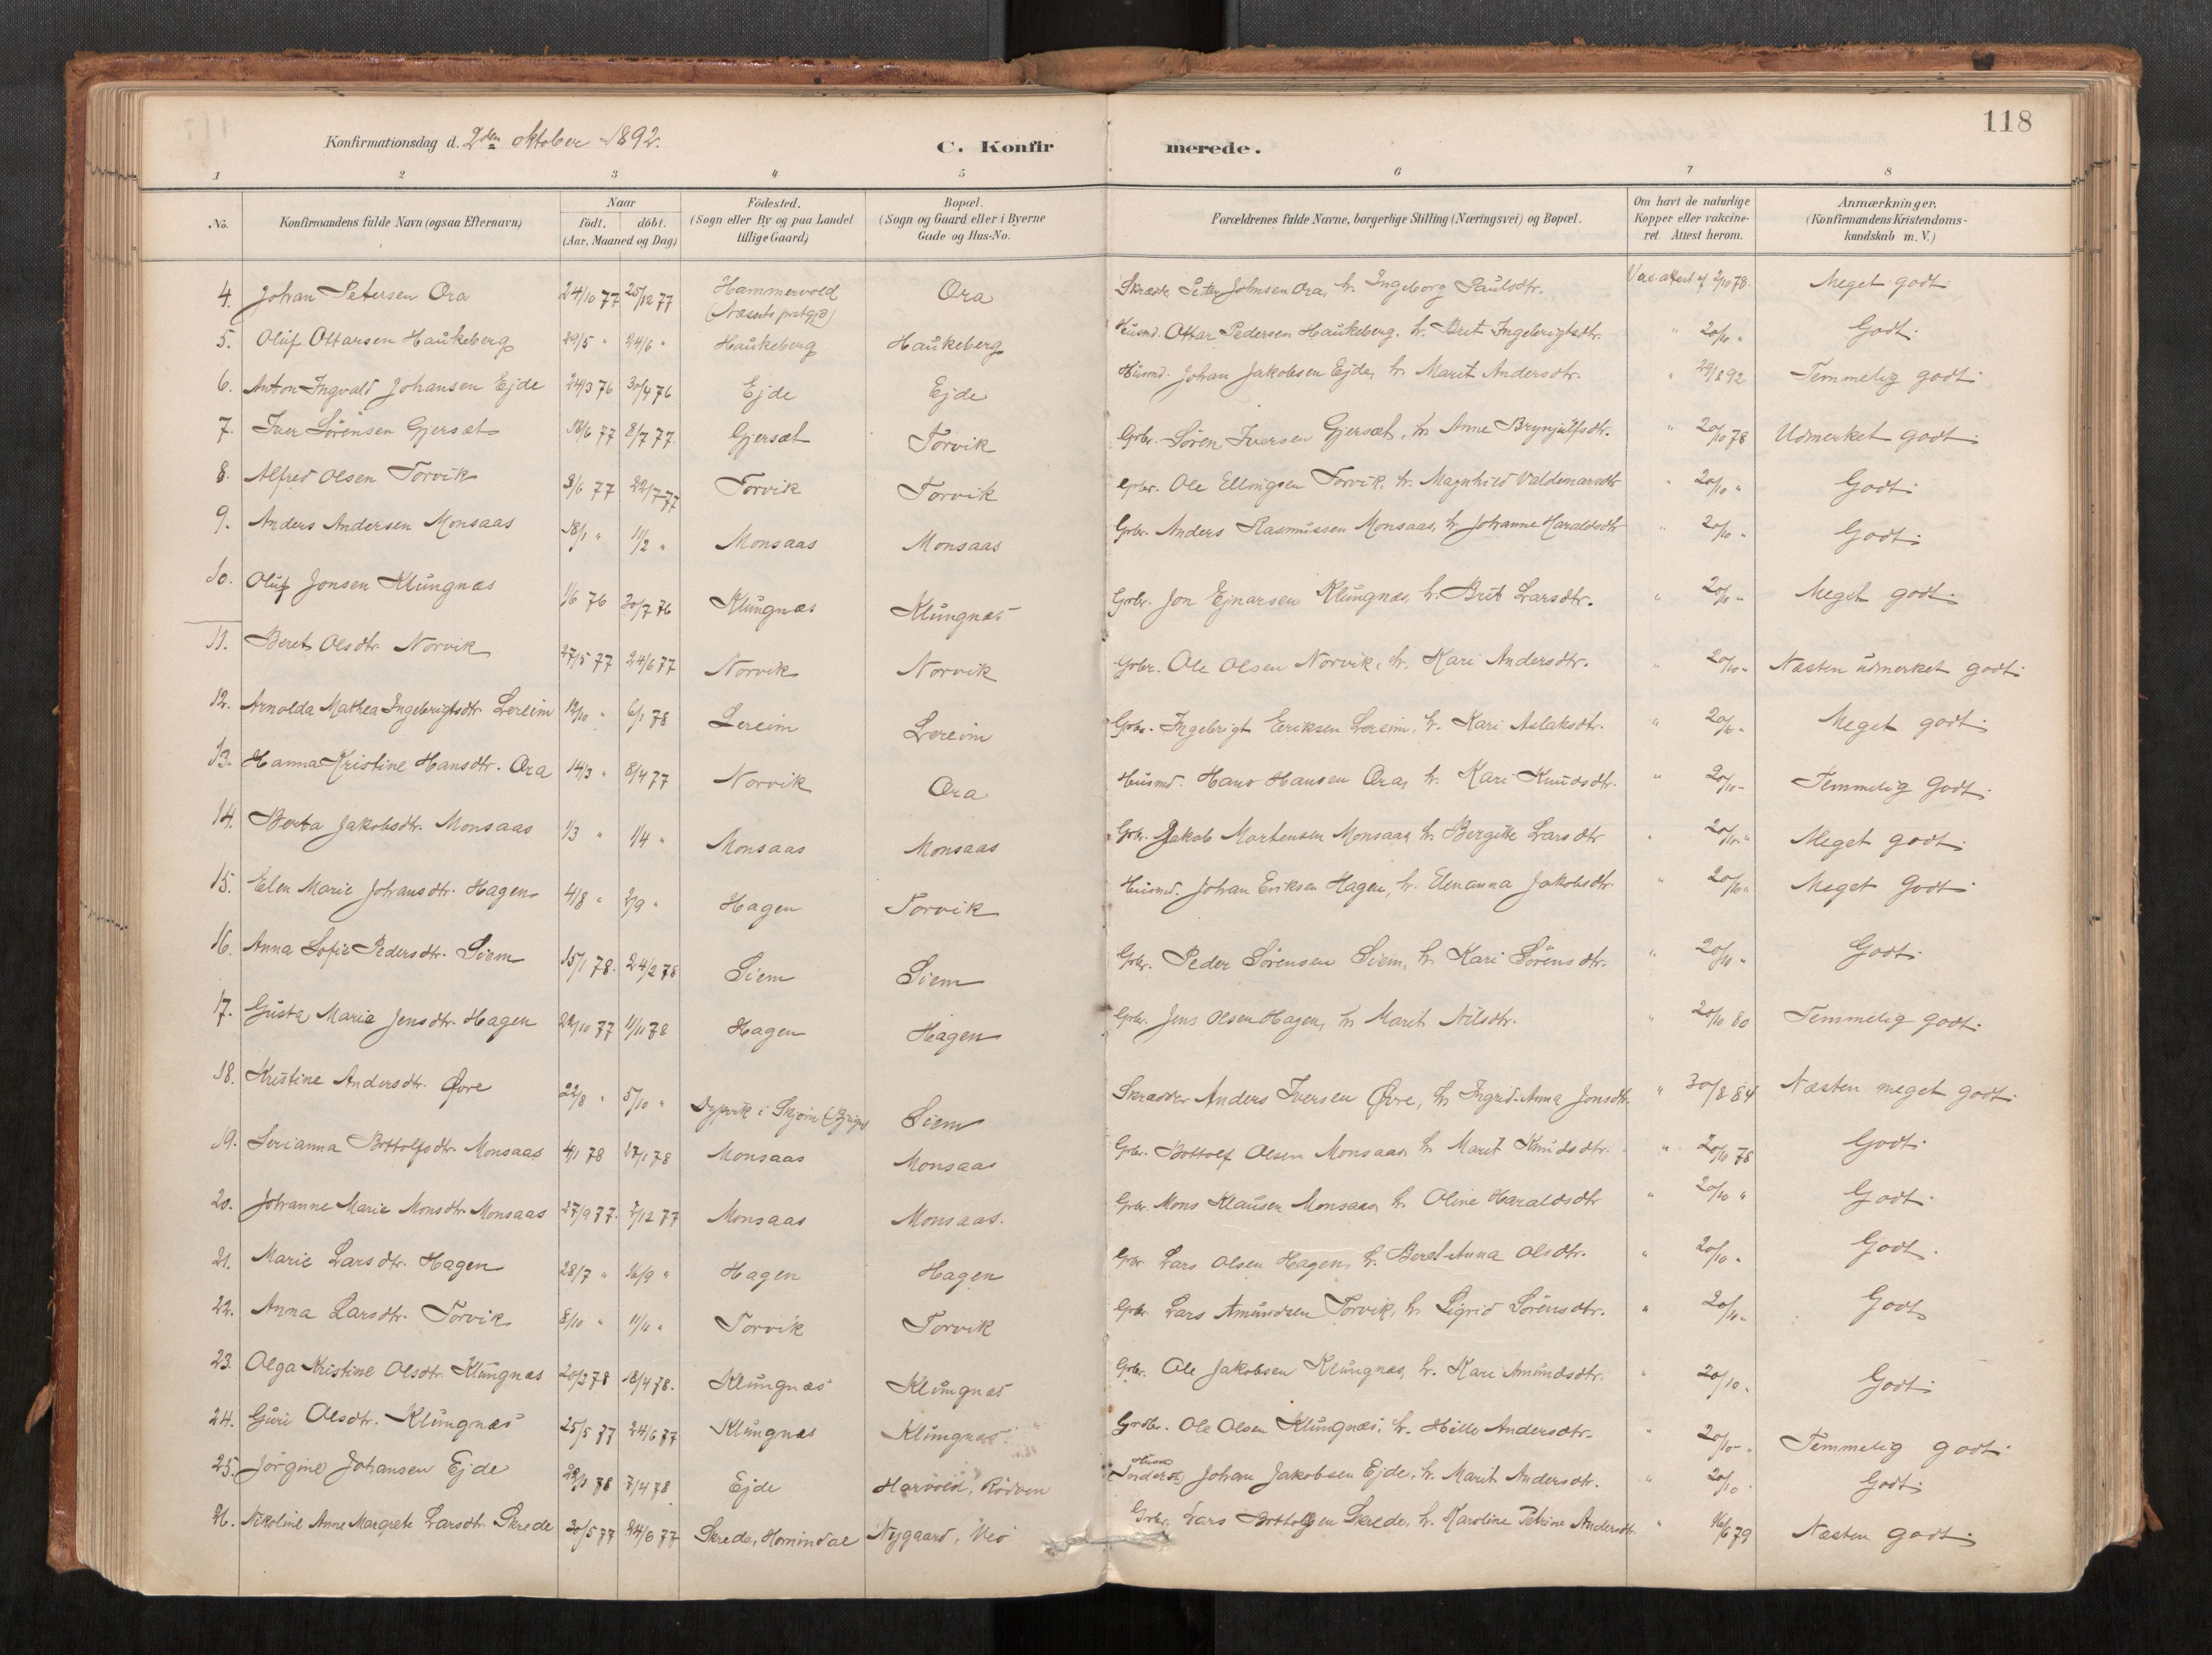 118
Konfirmationsdag d. 2den oktober 1892.
C. Konfirmerede.
1 2 3 4 5 6 7 8
No. Konfirmandens fulde Navn (ogsaa Efternavn) Naar födt. döbt. (Aar, Maaned og Dag) Födested. (Sogn eller By og paa Landet tillige Gaard) Bopæl. (Sogn og Gaard eller i Byerne Gade og Hus-No. Forældrenes fulde Navne, borgerlige Stilling (Næringsvei) og Bopæl. Om havt de naturlige Kopper eller vakcineret. Attest herom. Anmærkninger. (Konfirmandens Kristendomskundskab m. V.)
4. Johan Petersen Øra 24/10 77 25/12 77 Hammervold (Næssets prstgjd) Øra Skrædr. Peter Johnsen Øra, h. Ingeborg Paulsdtr. Vac. attest af 2/10 78. Meget godt
5. Oluf Ottarsen Haukeberg 20/5 " 24/6 " Haukeberg Haukeberg Husmd. Ottar Pedersen Haukeberg. h. Brit Ingebrigtsdtr. " 20/10 " Godt.
6. Anton Ingvald Johansen Ejde 24/3 76 30/4 76 Ejde Ejde Husmd. Johan Jakobsen Ejde, h. Marit Andersdtr. " 29/8 92 Temmelig godt
7. Iver Sörensen Gjersæt 18/6 77 8/7 77. Gjersæt Torvik Grbr. Sören Iversen Gjersæt, h. Anne Brynjulfsdtr. " 20/10 78 Udmerket godt.
8. Alfred Olsen Torvik 3/6 77 22/7 77 Torvik Torvik Grbr. Ole Ellingsen Torvik. h. Magnhild Valdemarsdtr " 20/10 " Godt.
9. Anders Andersen Monsaas 18/1 " 11/2 " Monsaas Monsaas Grbr. Anders Rasmussen Monsaas, h. Johanne Haraldsdtr " 20/10 " Godt.
10. Oluf Jonsen Klungnæs 1/6 76 30/7 76 Klungnæs Klungnæs Grbr. Jon Ejnarsen Klungnæs, h. Brit Larsdtr. " 20/10 " Meget godt.
11. Beret Olsdtr. Norvik 27/5 77 24/6 77 Norvik Norvik Grbr. Ole Olsen Norvik, h. Kari Andersdtr. " 20/10 " Næsten udmerket godt.
12. Arnolda Mathea Ingebrigtsdtr. Lereim 12/10 " 6/1 78 Lereim Lereim Grbr. Ingebrigt Eeriksen Lereim, h. Kari Aslaksdtr. " 20/10 " Meget godt.
13. Hanna Kristine Hansdtr. Øra 14/3 " 8/4 77 Norvik Øra Husmd. Hans Hansen Øra, h. Kari Knudsdtr. " 20/10 " Temmelig Godt.
14. Berta Jakobsdtr. Monsaas 1/3 " 1/4 " Monsaas Monsaas Grbr. Jakob Martensen Monsaas, h. Bergitte Larsdtr " 20/10 " Meget godt.
15. Elen Marie Johansdtr. Hagen 4/8 " 2/9 " Hagen Torvik Husmd. Johan Eriksen Hagen, h. Elenanna Jakobsdtr. " 20/10 " Meget Godt.
16. Anna Sofie Pedersdtr. Siem 15/1 78. 24/2 78 Siem Siem Grbr. Peder Sörensen Siem, h. Kari Sörensdtr. " 20/10 " Godt.
17. Gusta Marie Jensdtr. Hagen 22/10 77 11/11 78 Hagen Hagen Grbr. Jens Olsen Hagen, h. Marit Nilsdtr. " 20/10 80 Temmelig godt.
18. Kristine Andersdtr. Øvre 22/8 " 5/10 " Dypvik i Siem Skrædder Anders Iversen Øvre, h. Ingrid-Anna Jonsdtr. " 30/8 84 Næsten meget godt.
19. Serianna Bottolfsdtr. Monsaas 4/1 78 27/1 78 Monsaas Monsaas Grbr. Bottolf Olsen Monsaas, h. Marit Knudsdtr. " 20/10 78 Godt.
20. Johanne Marie Monsdtr. Monsaas 27/9 77. 2/12 77 Monsaas Monsaas. Grbr. Mons Klausen Monsaas, h. Oline Haraldsdtr " 20/10 " Godt.
21. Marie Larsdtr. Hagen 28/7 " 16/9 " Hagen Hagen Grbr. Lars Olsen Hagen, h. Beret-Anna Olsdtr. " 20/10 " Godt.
22. Anna Larsdtr. Torvik 8/10 " 11/11 " Torvik Torvik Grbr. Lars Amundsen Torvik, h. Sigrid Sörensdtr. " 20/10 " Godt
23. Olga Kristine Olsdtr. Klungnæs 20/2 78 18/4 78. Klungnæs Klungnæs Grbr. Ole Jakobsen Klungnæs, h. Kari Amundsdtr. " 20/10 " Godt.
24. Guri Olsdtr. Klungnæs 25/5 77 24/6 77 Klungnæs Klungnæs Grdbr. Ole Olsen Klungnæs, h. Hille Andersdtr. " 20/10 " Temmelig godt.
25. Jörgine Johansen Ejde 7/4 78 Ejde Harvold, Rödven Husmd Johan Jakobsen Ejde, h. Marit Andersdtr. " 20/10 Godt.
26. Nikoline Anne Margrete Larsdtr. Skrede 30/5 77 24/6 77 Skrede, Hornindal Nygaard, Veö Grbr. Lars Bottolfsen Skrede, h. Karoline Petrine Andersdtr. " 16/6 79 Næsten godt.